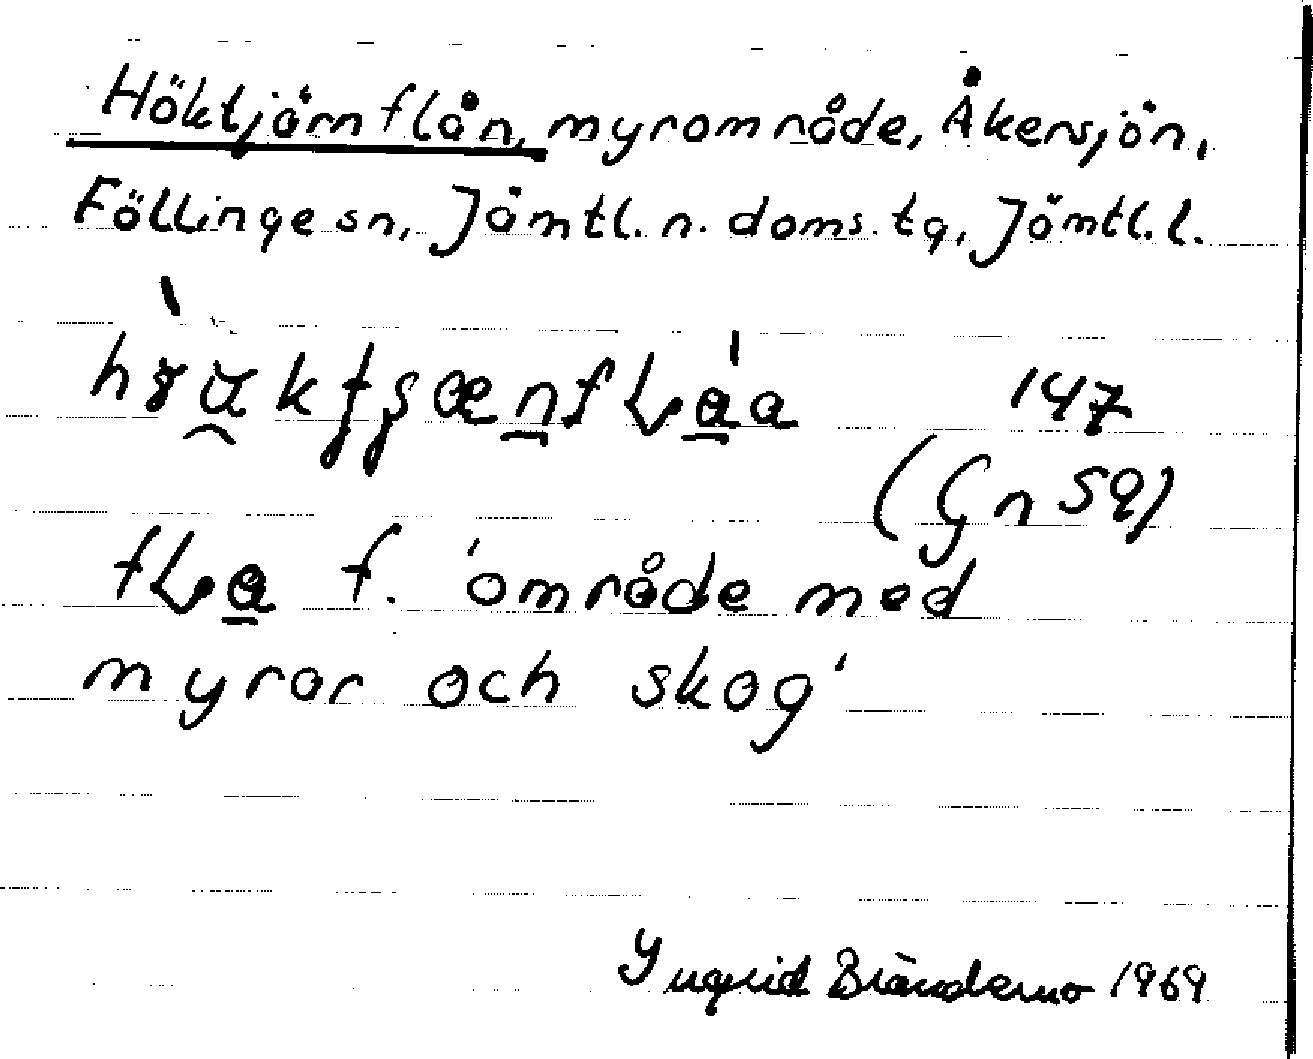 Höktjärnflån, myrområde, Åkersjön,
Föllinge sn, Jämtl. n. doms. tg, Jämtl. l.
147
(Gn 59)
f. 'område med
myror och skog'
Yngrid Bränderno 1969